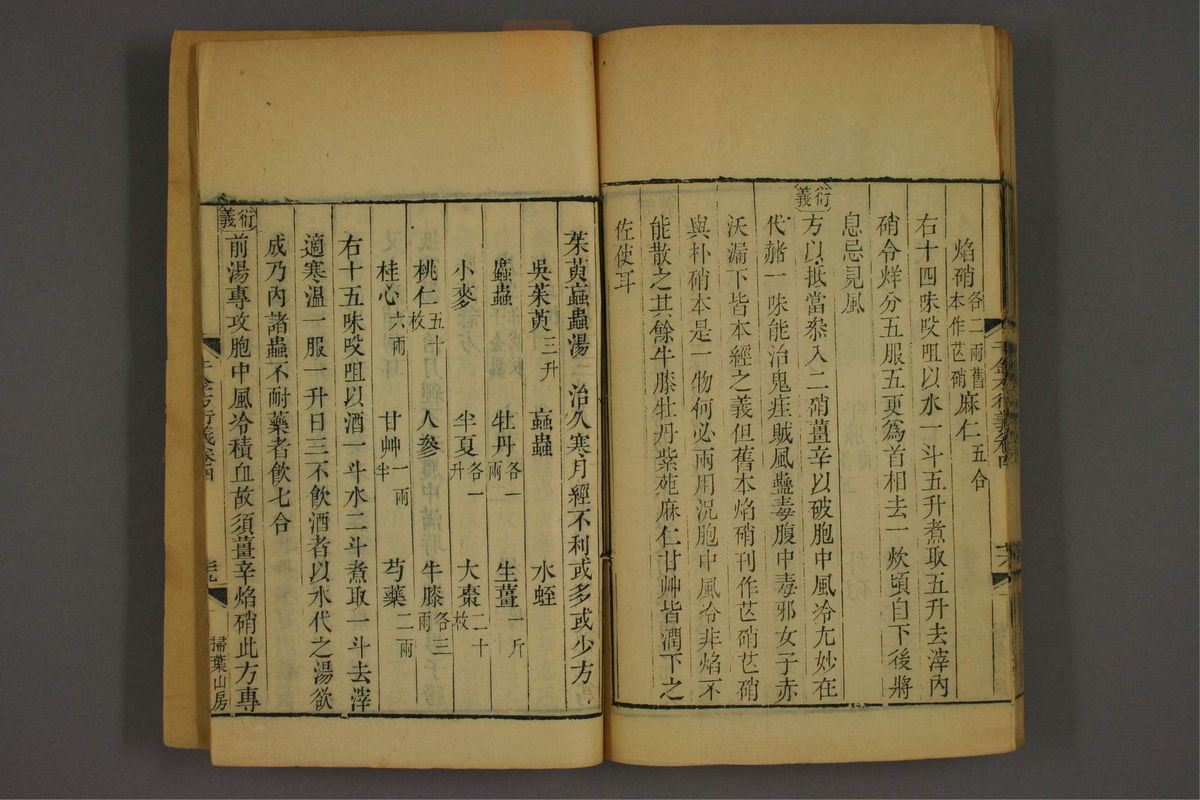 焰硝各二兩舊本作芒硝麻仁五合
右十四味㕮咀以水一斗五升煮取五升去滓內
硝令烊分五服五更為首相去一炊頃自下後將
息忌見風
衍義
方以抵當參入二硝薑辛以破胞中風冷尤妙在
代赭一味能治鬼疰賊風蠱毒腹中毒邪女子赤
沃漏下皆本經之義但舊本焰硝刊作芒硝芒硝
與朴硝本是一物何必兩用況胞中風冷非焰不
能散之其餘牛膝牡丹紫菀麻仁甘艸皆潤下之
佐使耳
茱萸䖟蟲湯二治久寒月經不利或多或少方
吳茱萸三升 䖟蟲 水蛭
䗪蟲 牡丹各一兩 生薑一斤
小麥 半夏各一升 大棗二十枚
桃仁五十枚 人參 牛膝各三兩
桂心六兩 甘艸一兩半 芍藥二兩
右十五味㕮咀以酒一斗水二斗煮取一斗去滓
適寒溫一服一升日三不飲酒者以水代之湯欲
成乃內諸蟲不耐藥者飲七合
衍義
前湯專攻胞中風冷積血故須薑辛焰硝此方專
千金方衍義卷四
掃葉山房